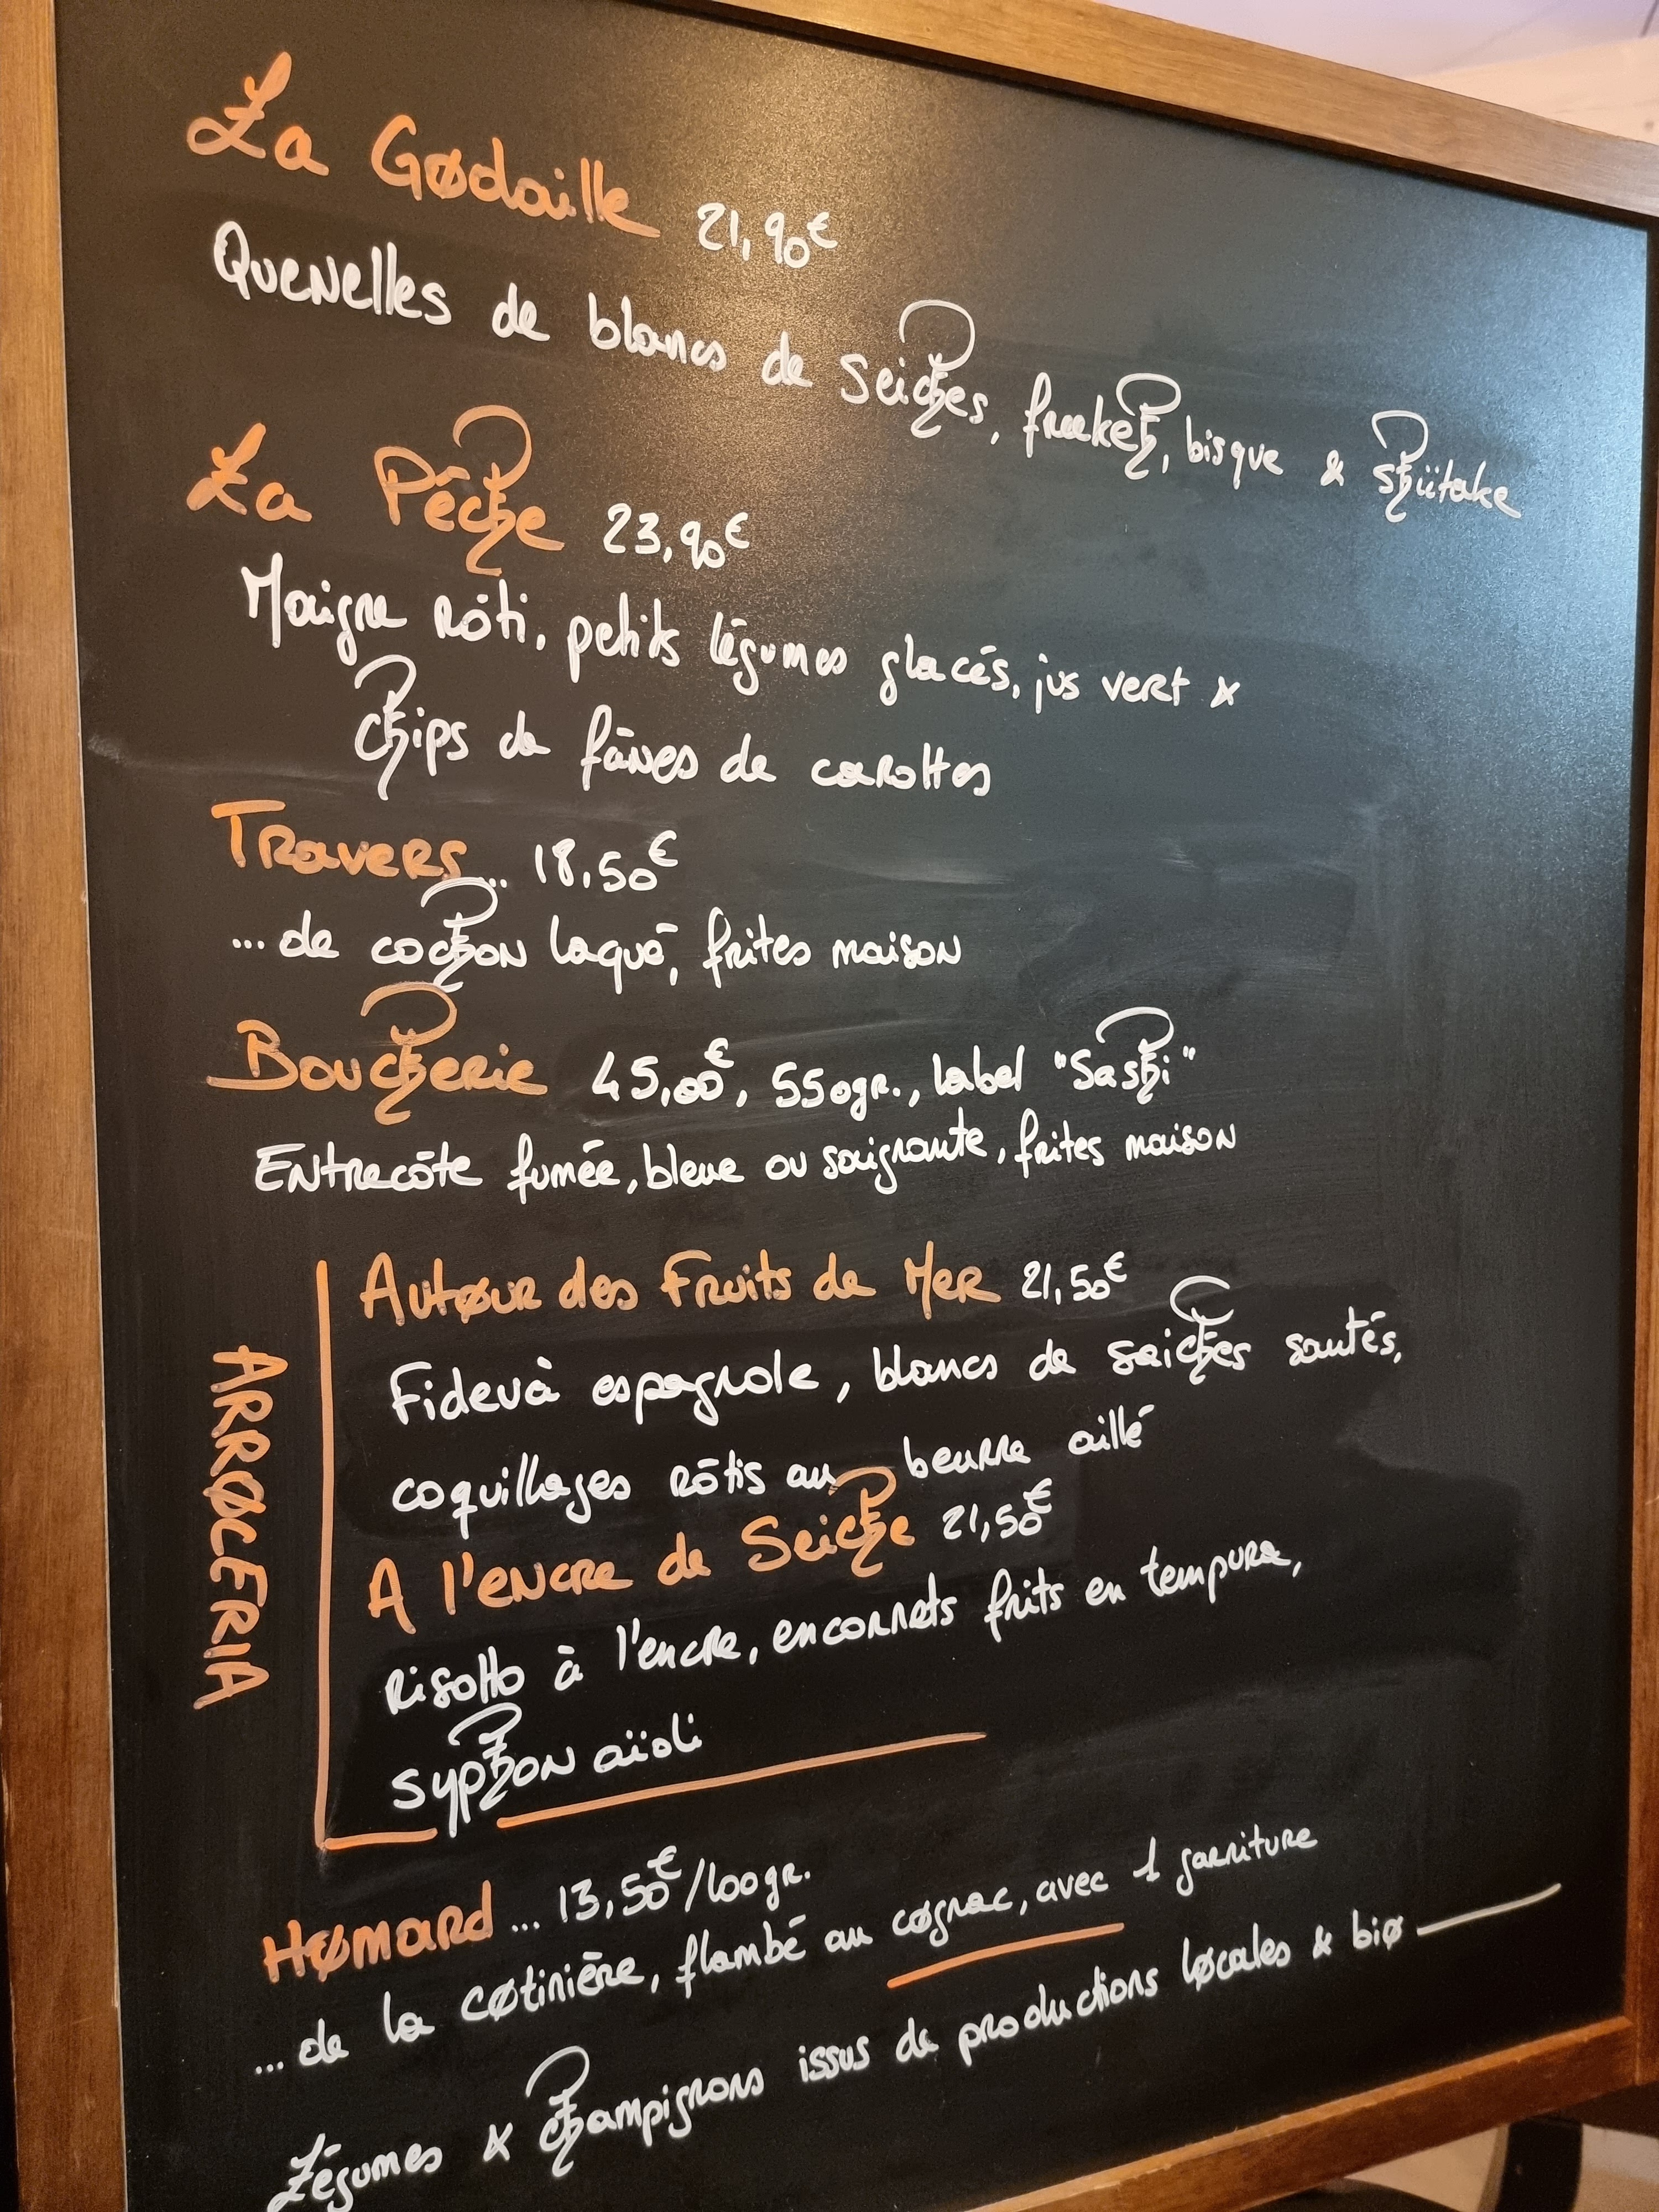 La Godaille 21,90€
Quenelles de blancs de seiches, freekeh, bisque & shiitake
La Pêche 23,90€
Maigre rôti, petits légumes glacés, jus vert &
chips de fânes de carottes
Travers... 18,50€
... de cochon laqué, frites maison
Boucherie 45,00€, 550gr., label "Sashi"
Entrecôte fumée, bleue ou saignante, frites maison
ARROCERIA
Autour des Fruits de Mer 21,50€
Fidevà espagnole, blancs de seiches sautés,
coquillages rôtis au beurre aillé
A l'encre de Seiche 21,50€
Risotto à l'encre, encornets frits en tempura,
syphon aïoli
Homard ... 13,50€/100gr.
... de la cotinière, flambé au cognac, avec 1 garniture
Légumes & champignons issus de productions locales & bio